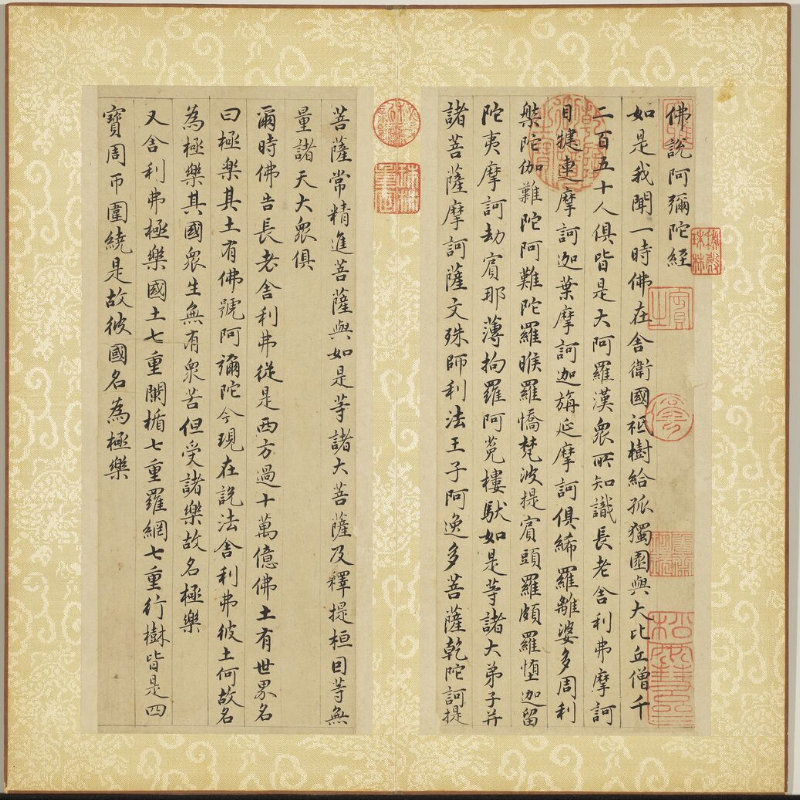 佛說阿彌陀經
如是我聞一時佛在舍衛國祇樹給孤獨園與大比丘僧千
二百五十人俱皆是大阿羅漢衆所知識長老舍利弗摩訶
目揵連摩訶迦葉摩訶迦旃延摩訶俱絺羅離婆多周利
槃陀伽難陀阿難陀羅睺羅憍梵波提賓頭羅頗羅墮迦留
陀夷摩訶劫賓那薄拘羅阿㝹樓馱如是等諸大弟子并
諸菩薩摩訶薩文殊師利法王子阿逸多菩薩乾陀訶提
菩薩常精進菩薩與如是等諸大菩薩及釋提桓因等無
量諸天大衆俱
爾時佛告長老舍利弗從是西方過十萬億佛土有世界名
曰極樂其土有佛號阿彌陀今現在說法舍利弗彼土何故名
為極樂其國衆生無有衆苦但受諸樂故名極樂
又舍利弗極樂國土七重闌楯七重羅網七重行樹皆是四
寶周帀圍繞是故彼國名為極樂